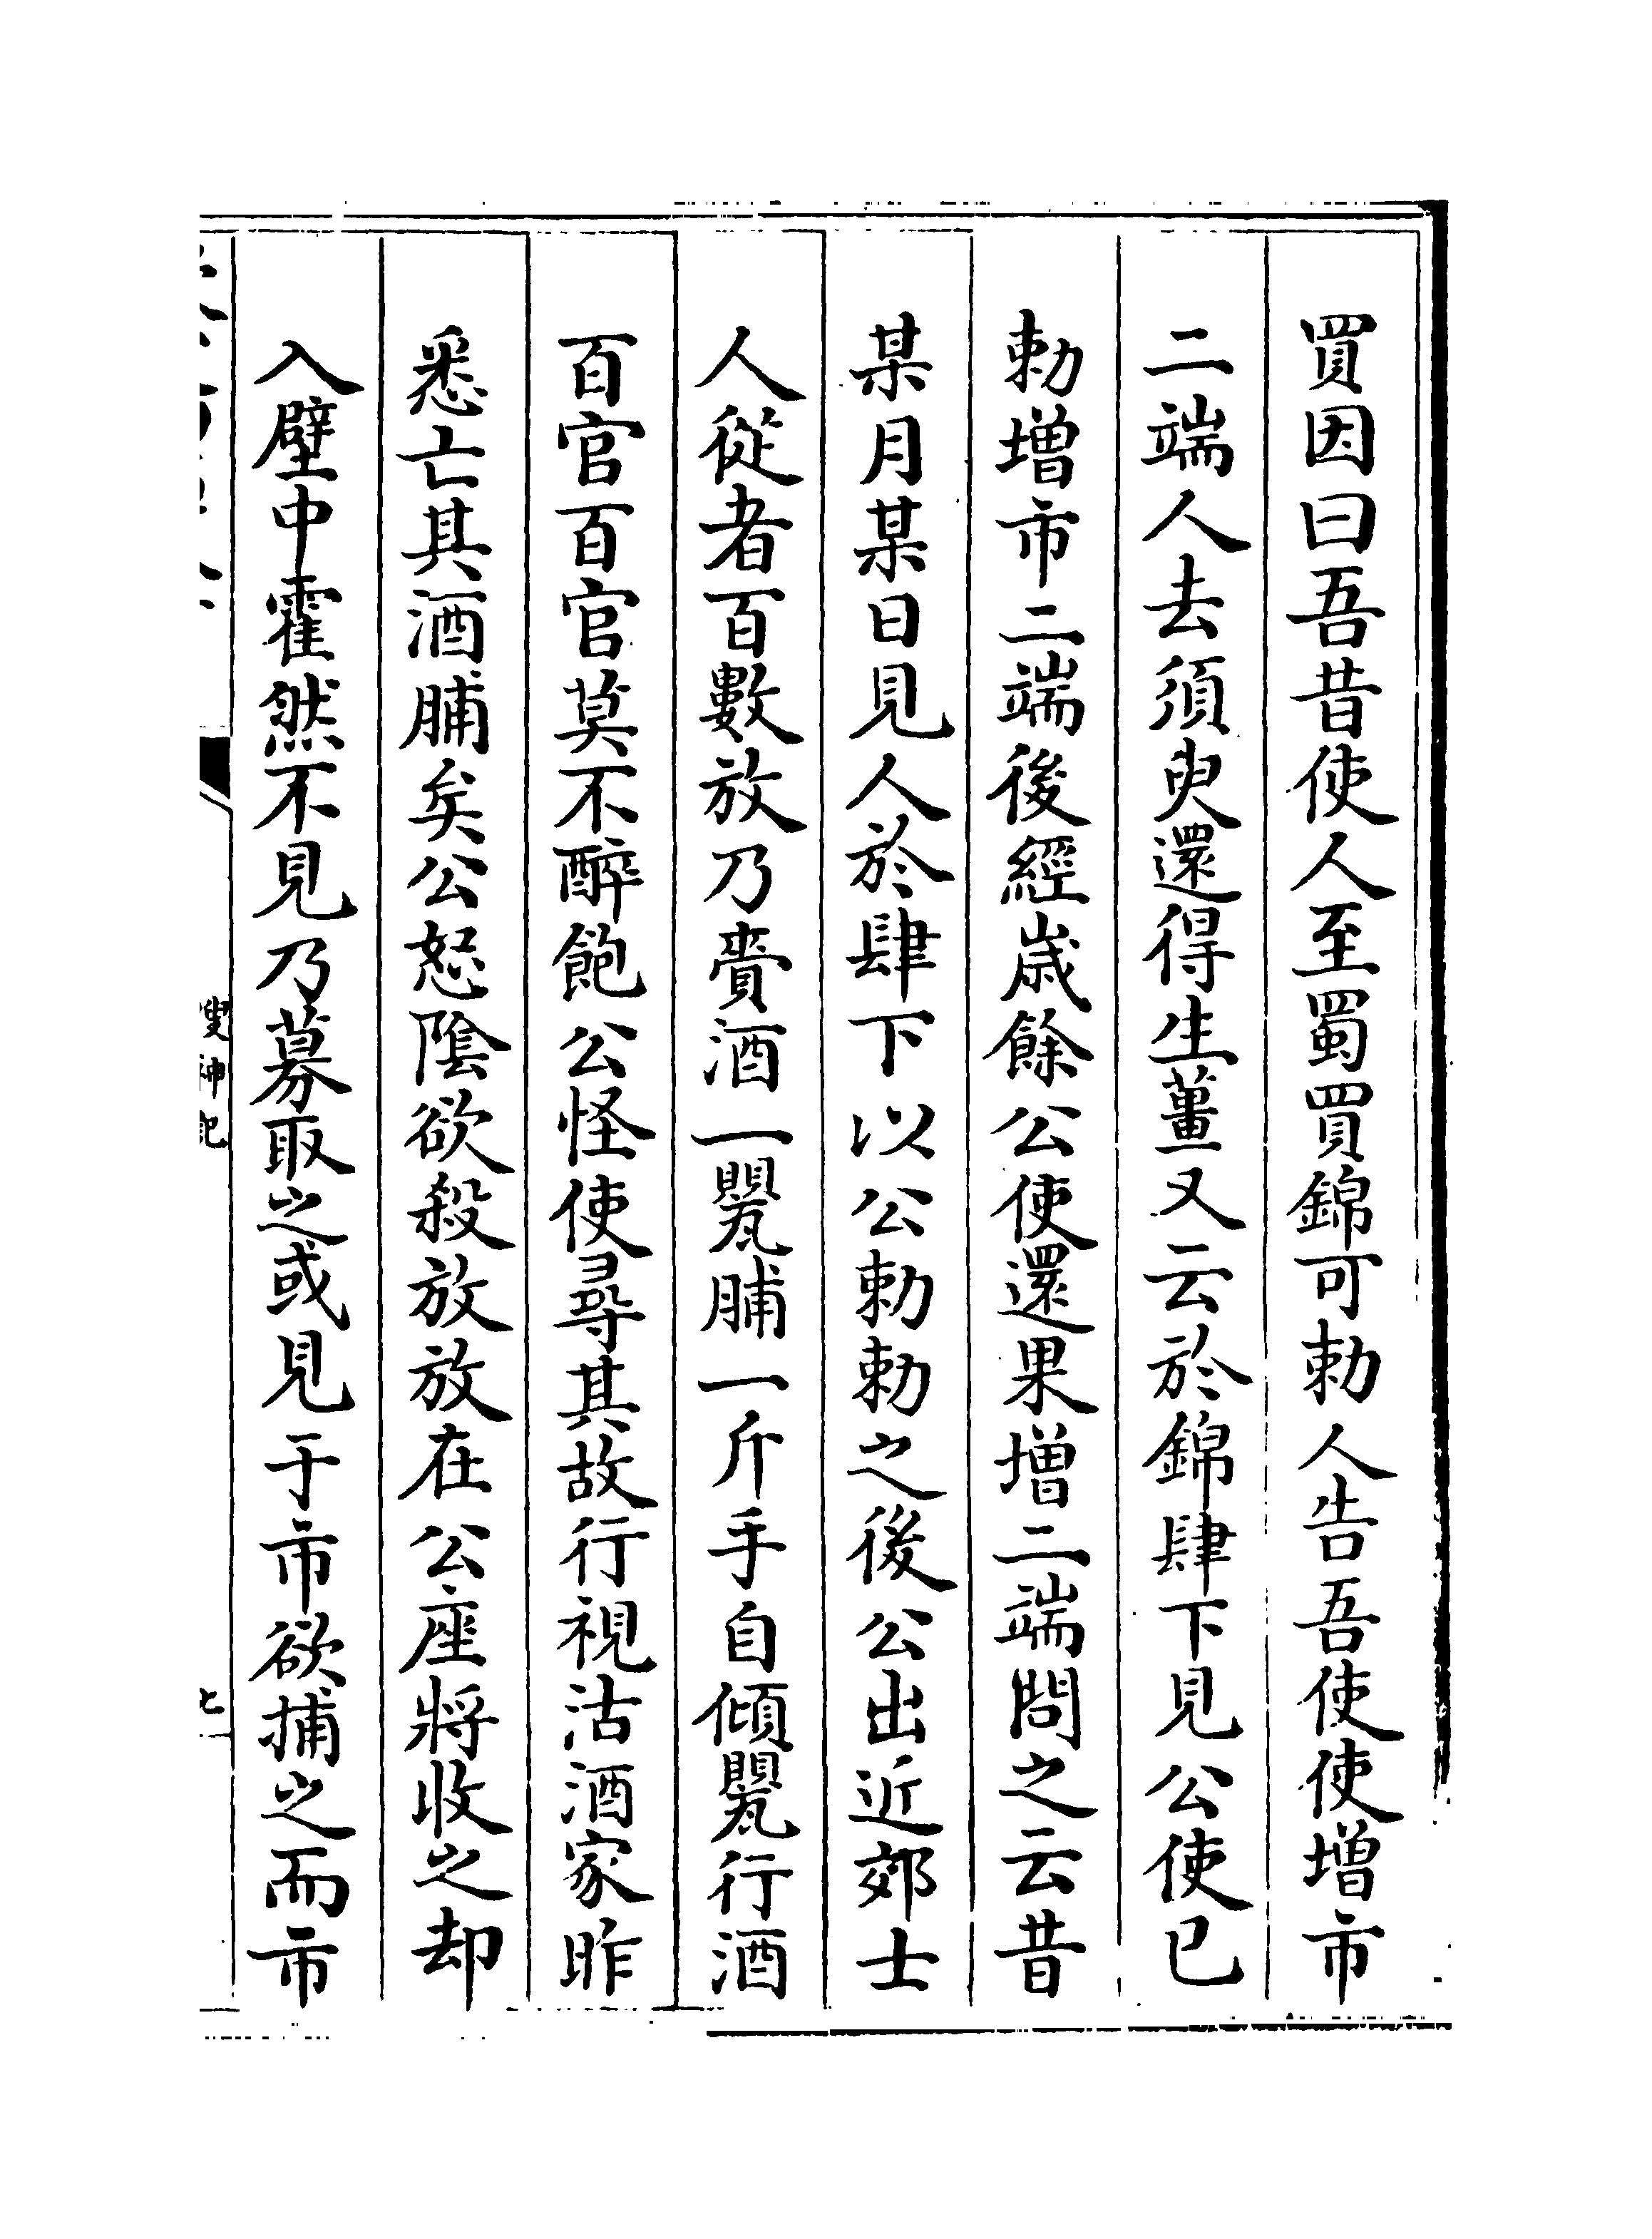 買因曰吾昔使人至蜀買錦可勅人告吾使使増市
二端人去須臾還得生薑又云於錦肆下見公使已
勅増市二端後經歳餘公使還果増二端問之云昔
某月某日見人於肆下以公勅勅之後公出近郊士
人從者百數放乃賫酒一甖脯一斤手自傾甖行酒
百官百官莫不醉飽公怪使尋其故行視沽酒家昨
悉亡其酒脯矣公怒隂欲殺放放在公座將收之却
入壁中霍然不見乃募取之或見于市欲捕之而市
搜神記